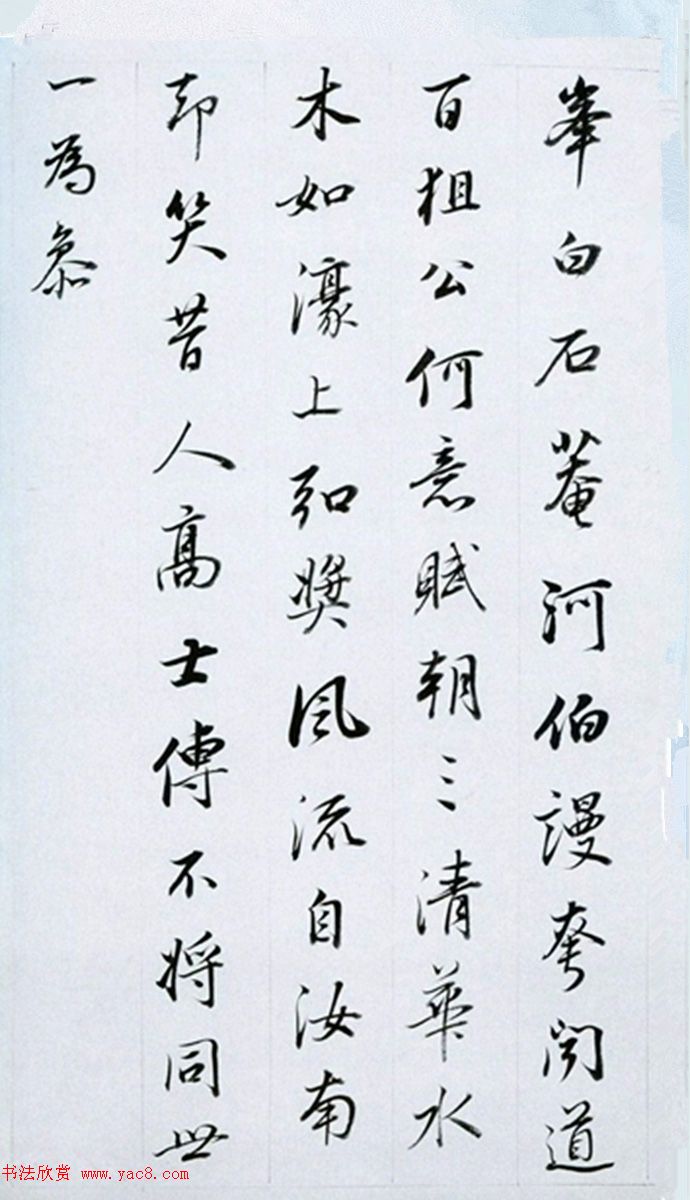 峯白石菴河伯謾夸闻道
百狙公何意賦朝三清華水
木如濠上弘奬风流自汝南
却笑昔人高士傳不将同世
一為叅
书法欣赏 www.yac8.com